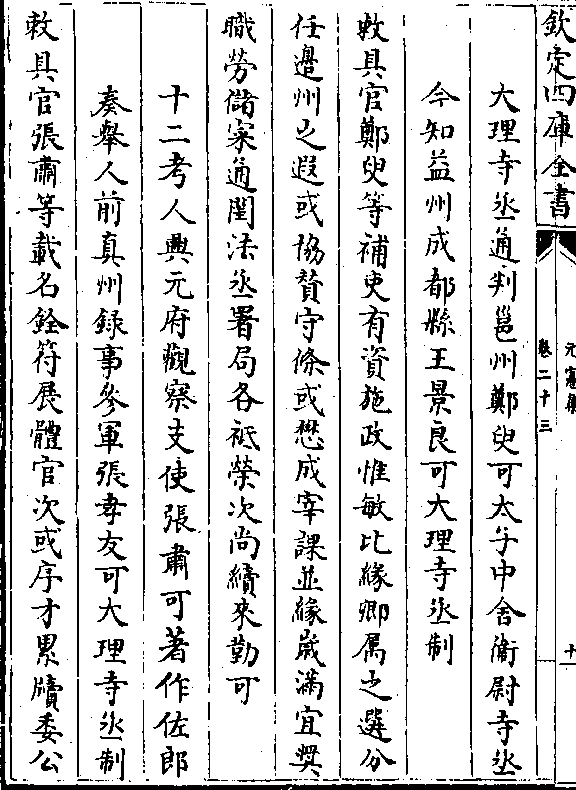 欽定四庫全書
元憲集
卷二十三
十
大理寺丞通判邕州鄭臾可太子中舍衛尉寺丞
今知益州成都縣王景良可大理寺丞制
敕具官鄭臾等補吏有資施政惟敏比緣卿属之選分
任邉州之遐或協賛守條或懋成宰課並緣歲滿宜奬
職勞儲寀通閨法丞署局各祗榮次尚續來勤可
十二考人興元府觀察支使張肅可著作佐郎
奏舉人前真州録事參軍張孝友可大理寺丞制
敕具官張肅等載名銓符展體官次或序才累牘委公